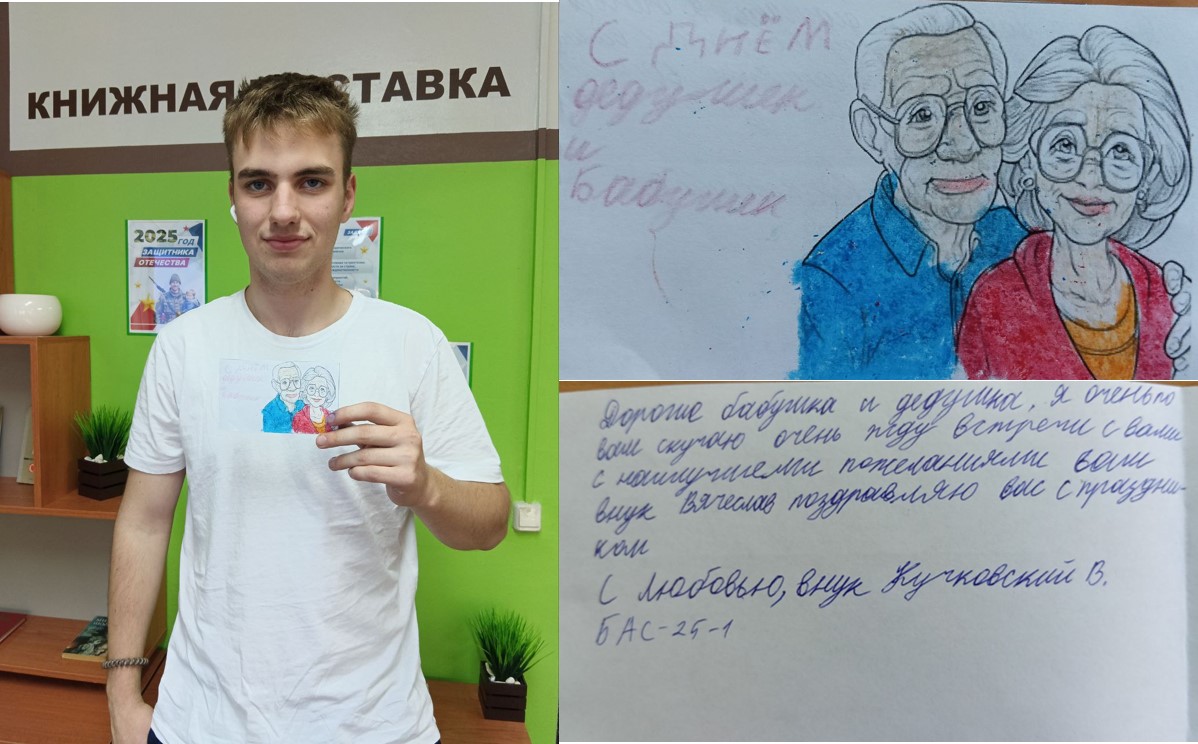 КНИЖНАЯ ВЫСТАВКА
2025 ГОД
ЗАЩИТНИКА
ОТЕЧЕСТВА
С Днём
дедушек
и
Бабушек
Дорогие бабушка и дедушка, я очень по
вам скучаю очень жду встречи с вами
с наилучшеми пожеланиями ваш
внук Вячеслав поздравляю вас с праздни-
ком
С любовью, внук Кучковский В.
БАС-25-1